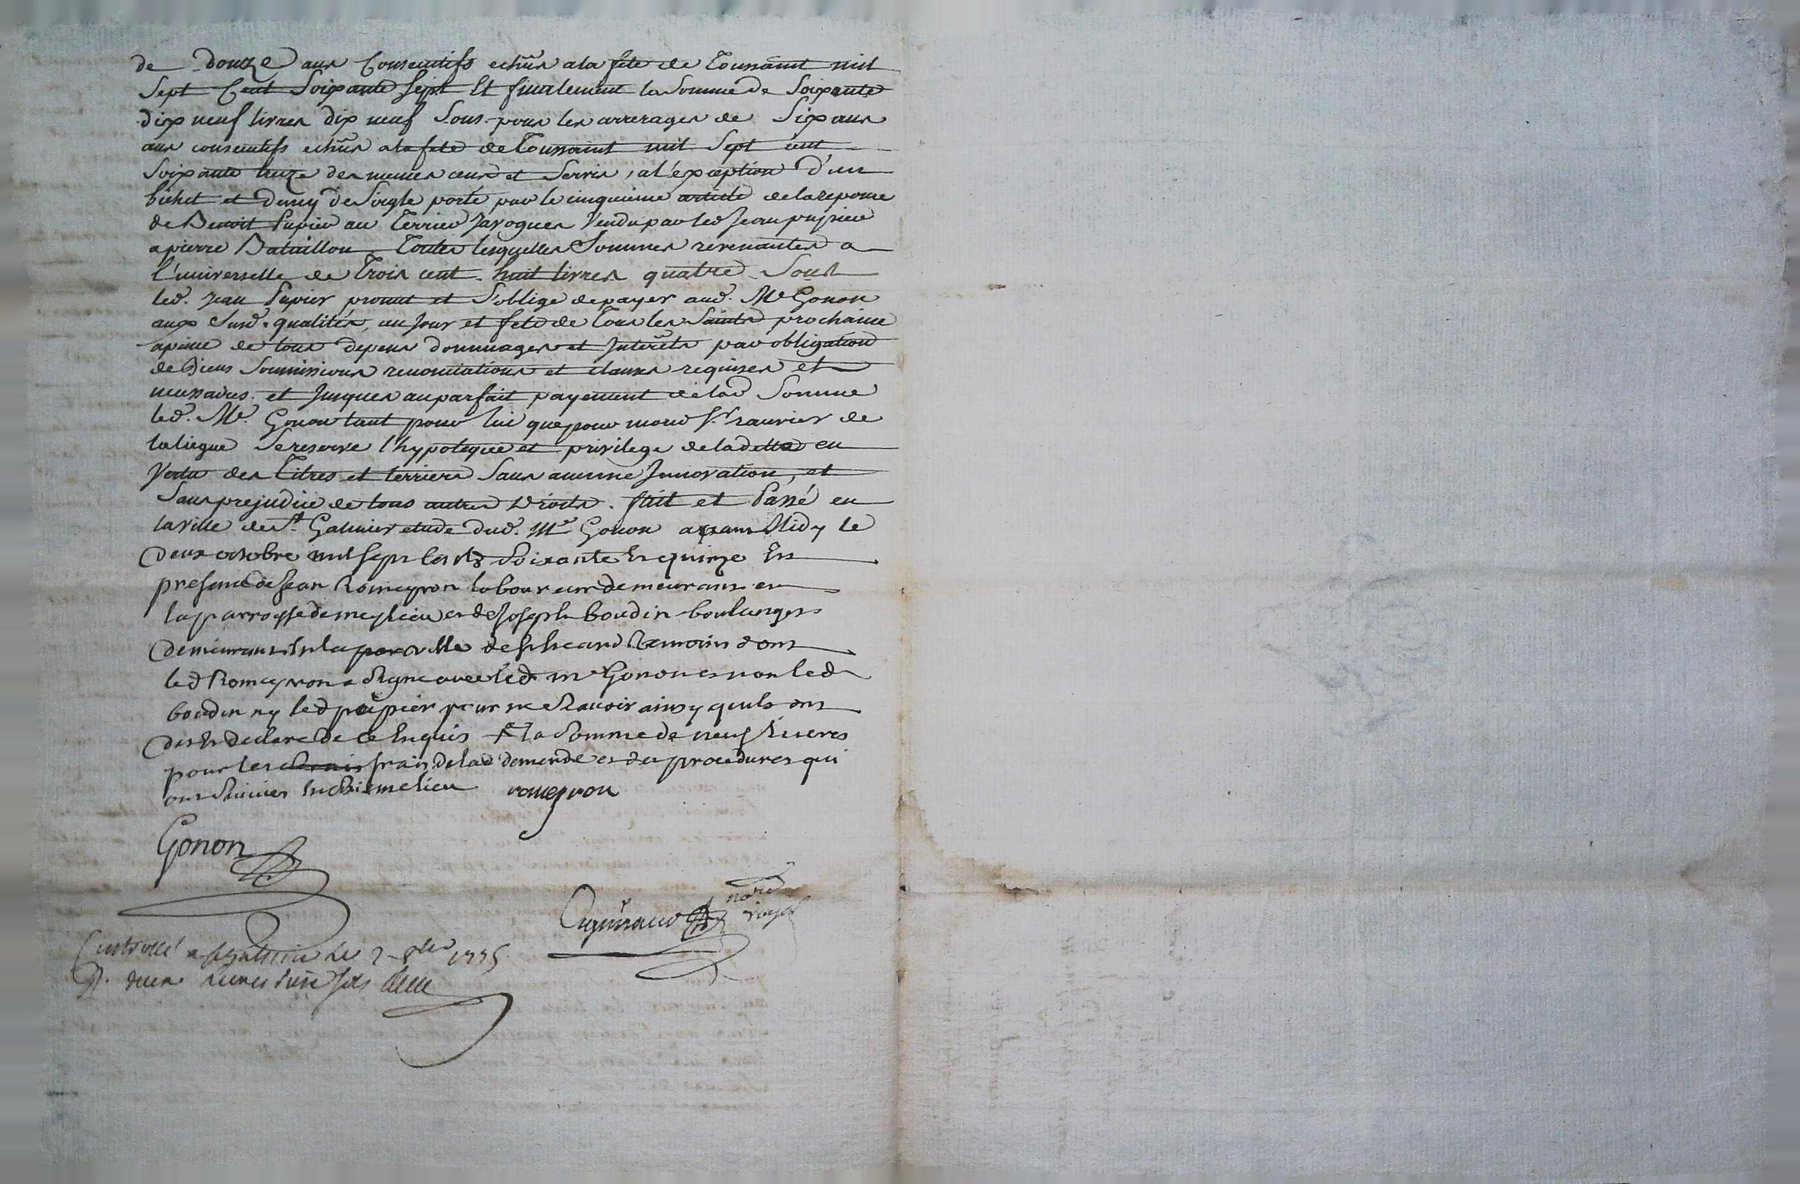 de douze ans Consecutifs echûs ala fete de Toussaint mil
Sept Cent Soixante sept Et finalement la Somme de Soixante
dix neuf livres dix neuf Sous pour les arrerages de Six ans
ans consecutifs echûs ala fete de Toussaint mil Sept cent
Soixante treize des memes cens et Servis, a l'exception d'un
bichet et demy de Siegle porté par le cinquieme article de la reponse
de Benoit Pupier au Terrier Javogues Vendu par led. Jean pupier
a pierre Bataillon Toutes lesquelles Sommes revenantes a
l'universelle de Trois cent huit livres quatre Sous
led. Jean Pupier promet et S'oblige de payer aud. Me Gonon
aux Susd. qualités, au Jour et fete de Tous les Saints prochaine
apeine de tous depens dommages et Interêts par obligation
de Biens Soumissions renonciations et clauses requises et
necessaires et Jusques au parfait payement de lad Somme
led. Me. Gonon tant pour lui que pour mond Sr. de
la liegue Se reserve l'hypoteque et privilege de la dette en
Vertu des Titres et terriers Sans aucune Innovation, et
Sans prejudice de tous autres Droits. fait et Passé en
la ville de St. Galmier etude dud. Me Gonon avant Midy le
Deux octobre mil Sept Cents Soixante Et quinze En
presence de Jean Romeyron laboureur demeurant en
la parroisse de meylieu et de Joseph boudin boulanger
Demeurant En la ville de Temoins dont
led Romeyron a Signé avec led me Gonon et non led
boudin ny led pupier pour ne Scavoir ainsy quils ont
Dit Et Declaré de ce Enquis la Somme de neuf Livres
pour les frais de lad demende et des procedures qui
ont Suivies romeyron
Gonon
nore
royal
Controllé a St Galmier le 2 8bre 1775
R.